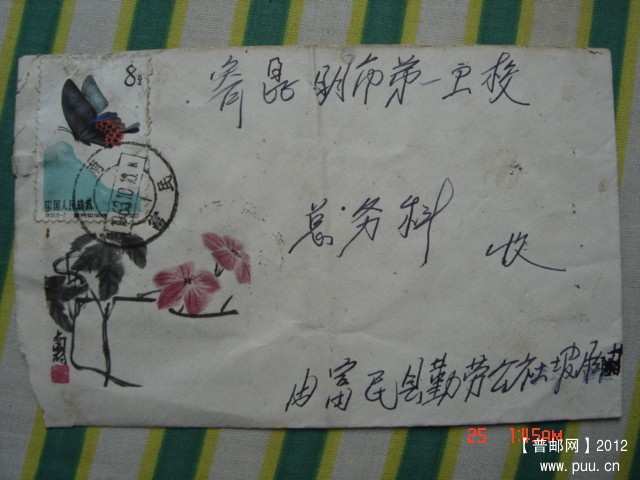 8分
中国人民邮政
寄昆明市第一卫校
总务科 收
由富民县勤劳公社坡
25 1:45AM
【普邮网】2012
www.puu.cn